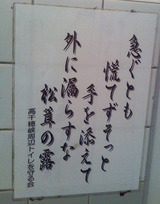 急ぐとも
慌てずそっと
手を添えて
外に漏らすな
松茸の露
高千穂峡周辺トイレを守る会